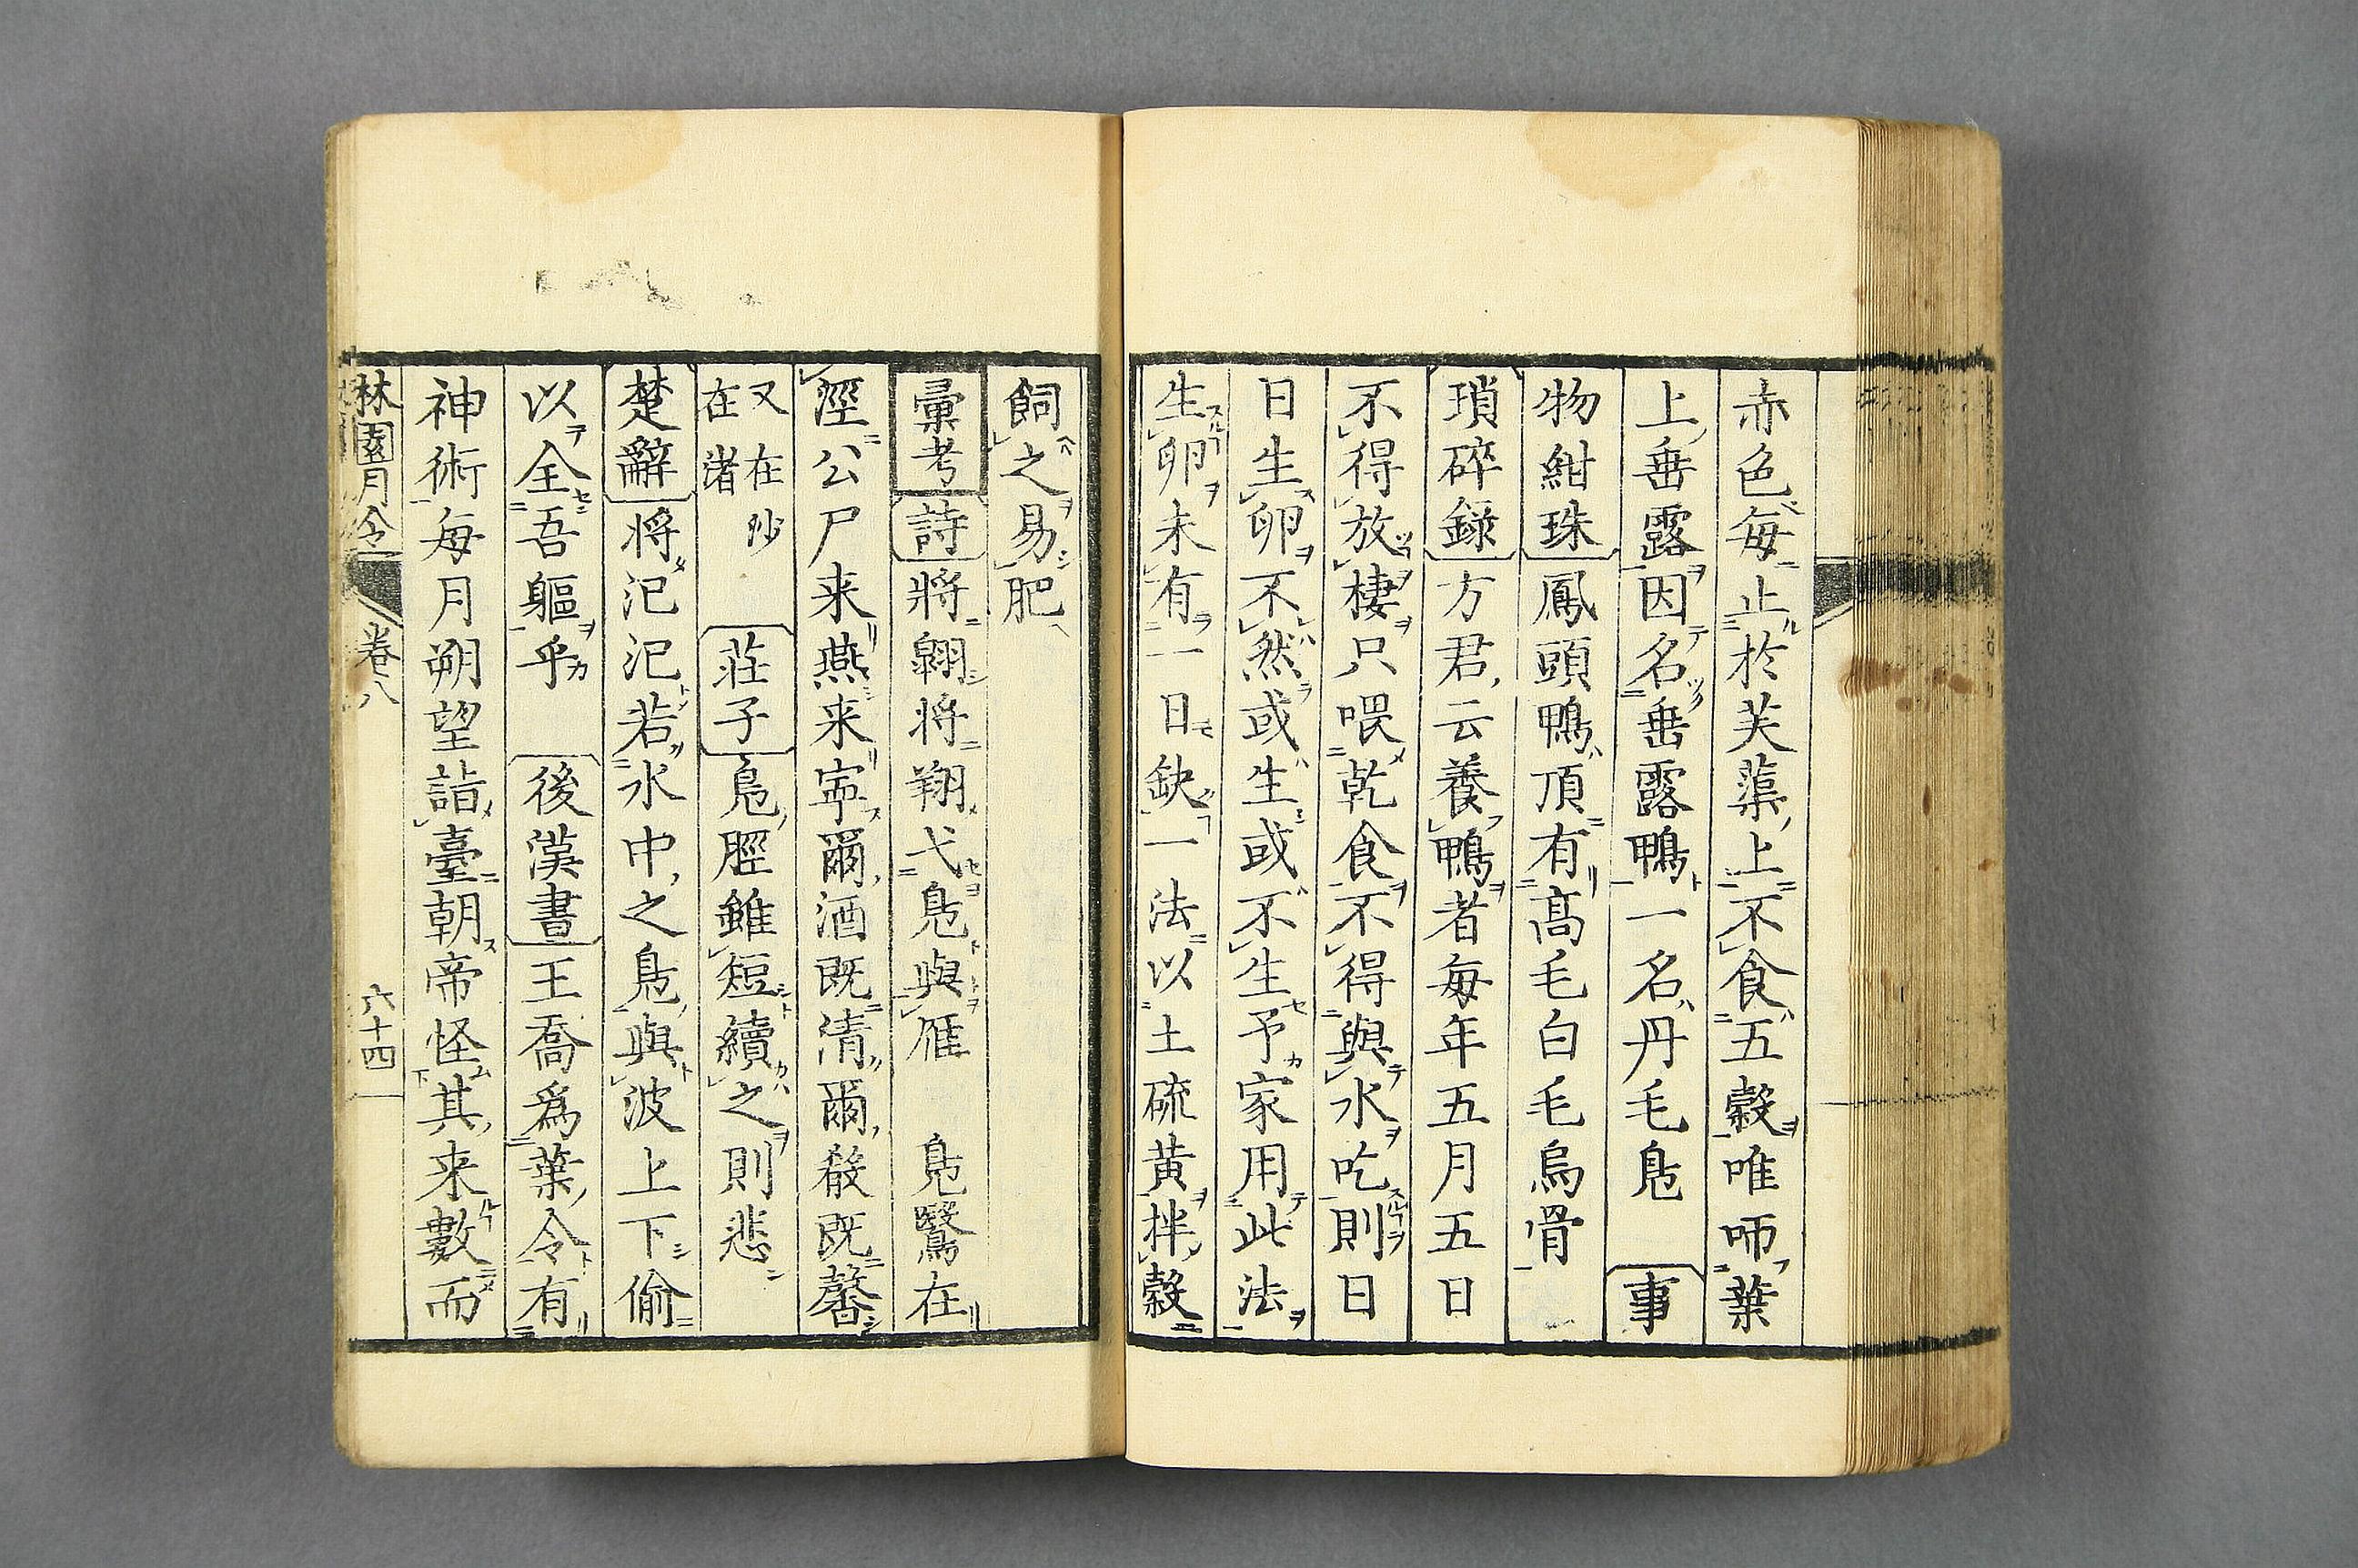 赤色毎止於芙蕖上不食五穀唯咂葉
上垂露因名垂露鴨一名丹毛鳧 事
物紺珠 鳳頭鴨頂有高毛白毛烏骨
瑣碎錄 方君云養鴨者毎年五月五日
不得放棲只喂乾食不得與水吃則日
日生卵不然或生或不生予家用此法
生卵未有一日缺一法以土硫黄拌穀
飼之易肥
彙考 詩 將翺将翔弋鳧與雁 鳧鷖在
涇公尸来燕来寧爾酒既清爾殽既馨
又在沙
在渚
荘子 鳧脛雖短續之則悲
楚辭 将氾氾若水中之鳧與波上下偷
以全吾軀乎 後漢書 王喬爲葉令有
神術毎月朔望詣臺朝帝怪其来數而
林園月令 卷八 六十四